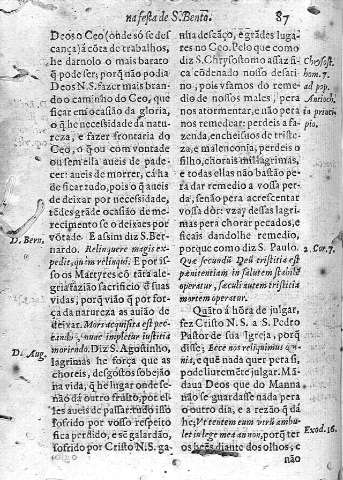 na festa de S. Bento.
87
Deos o Ceo (onde só se def
cança) á cõta de trabalhos,
he darnolo o mais barato
q̃ pode ser; porq̃ não podia
Deos N.S. fazer mais bran-
do o caminho do Ceo, que
ficar em occasião da gloria,
o q̃ he necessidade da natu-
reza, e fazer frontaria do
Ceo, o q̃ ou com vontade
ou sem ella aueis de pade-
cer: aueis de morrer, cá ha
de ficar tudo, pois o q̃ aueis
de deixar por necessidade,
tẽdes grãde ocasião de me-
recimento se o deixaes por
võtade. E assim diz S. Ber-
D. Bern.
nardo. Relinquere magis ex-
pedit, quàm relinqui. E por is-
so os Martyres cõ tãta ale-
gria fazião sacrificio d̃ suas
vidas, porq̃ vião q̃ por for-
ça da natureza as auião de
deixar. Mors acquisita est pec-
cando, nunc impletur iustitia
moriendo. Diz S. Agostinho,
D. Aug.
lagrimas he força que as
choreis, desgostos sobejão
na vida, q̃ he lugar onde se
não dá outro fruito, por el-
les aueis de passar: tudo isso
sofrido por vosso respeito
fica perdido, e sẽ galardão,
sofrido por Cristo N.S. ga-
nha descãço, e grãdes luga-
res no Ceo. Pelo que como
diz S. Chrysostomo assaz fi-
Chrysost.
ca cõdenado nosso desati-
hom. 7.
no, pois vsamos do reme-
ad pop.
dio de nossos males, pera
Antioch.
nos atormentar, e não pera
in princi-
nos remedear: perdeis a fa-
pio.
zenda, encheisvos de triste-
za, e malenconia, perdeis o
filho, chorais mil lagrimas,
e todas ellas não bastão pe-
ra dar remedio a vossa per-
da, senão pera acrescentar
vossa dor: vzay dessas lagri-
mas pera chorar pecados, e
ficais dandolhe remedio,
porque como diz S. Paulo.
2. Cor. 7.
Quæ secundũ Deũ tristitia est
pœnitentiam in salutem stabilẽ
operatur, sæculi autem tristitia
mortem operatur.
Quãto á hõra de julgar,
fez Cristo N.S. a S. Pedro
Pastor de sua Igreja, porq̃
disse; Ecce nos reliquimus om-
nia, e quẽ nada quer pera si,
pode liuremẽte julgar. Mã-
daua Deos que do Manna
não se guardasse nada pera
o outro dia, e a rezão q̃ dá
he; Vt tentem eum vtrũ ambu-
let in lege mea an non, porq̃ ter
Exod. 16.
os bẽs diante dos olhos, e
não